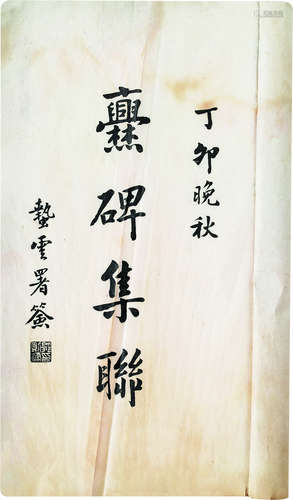 丁卯晚秋
爨碑集聯
蟄雲署簽